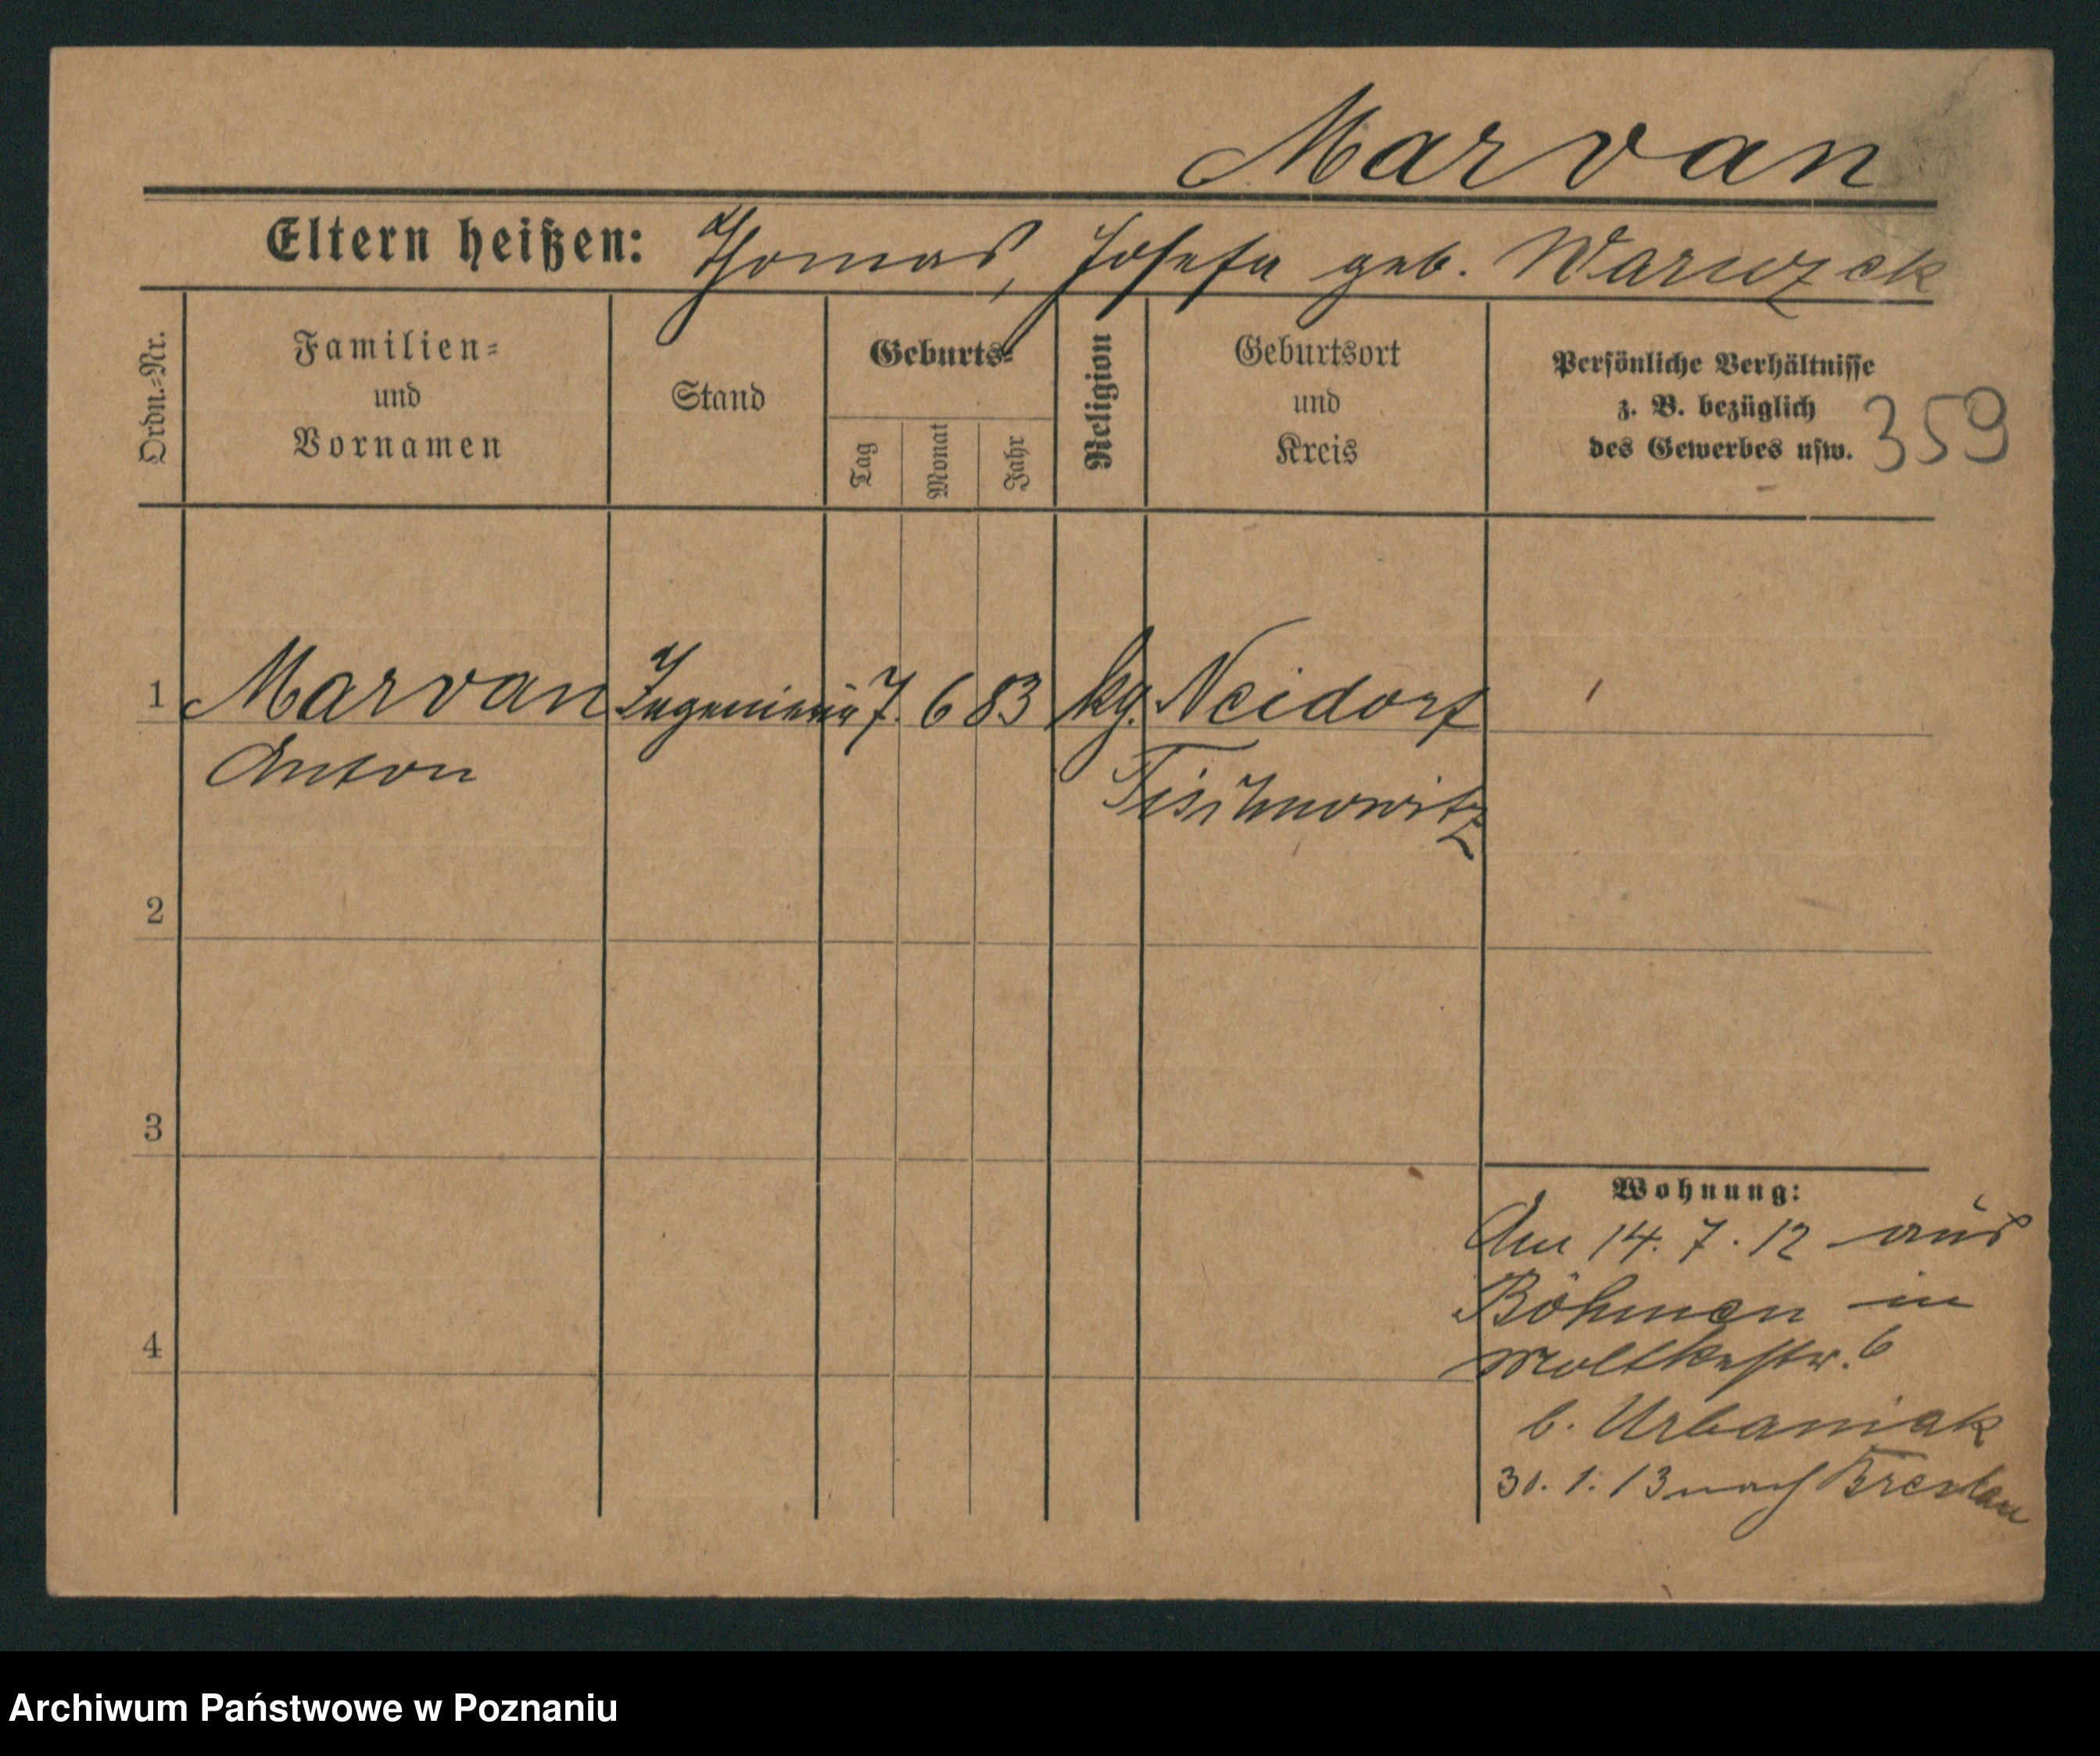 Marvan
Eltern heißen: Thomas, Josefa geb. Warwzek
Ordn.-Nr.
Familien-
und
Vornamen
Stand
Geburts-
Tag
Monat
Jahr
Religion
Geburtsort
und
Kreis
Persönliche Verhältnisse
z. B. bezüglich
des Gewerbes usw.
359
1 Marvan Ingenieur 7. 6 83 kg. Neidorf
Anton Tischnowitz
2
3
4
Wohnung:
Am 14. 7. 12 aus
Böhmen in
Moltkestr. 6
b. Urbaniak
30. 1. 13 nach Breslau
Archiwum Państwowe w Poznaniu